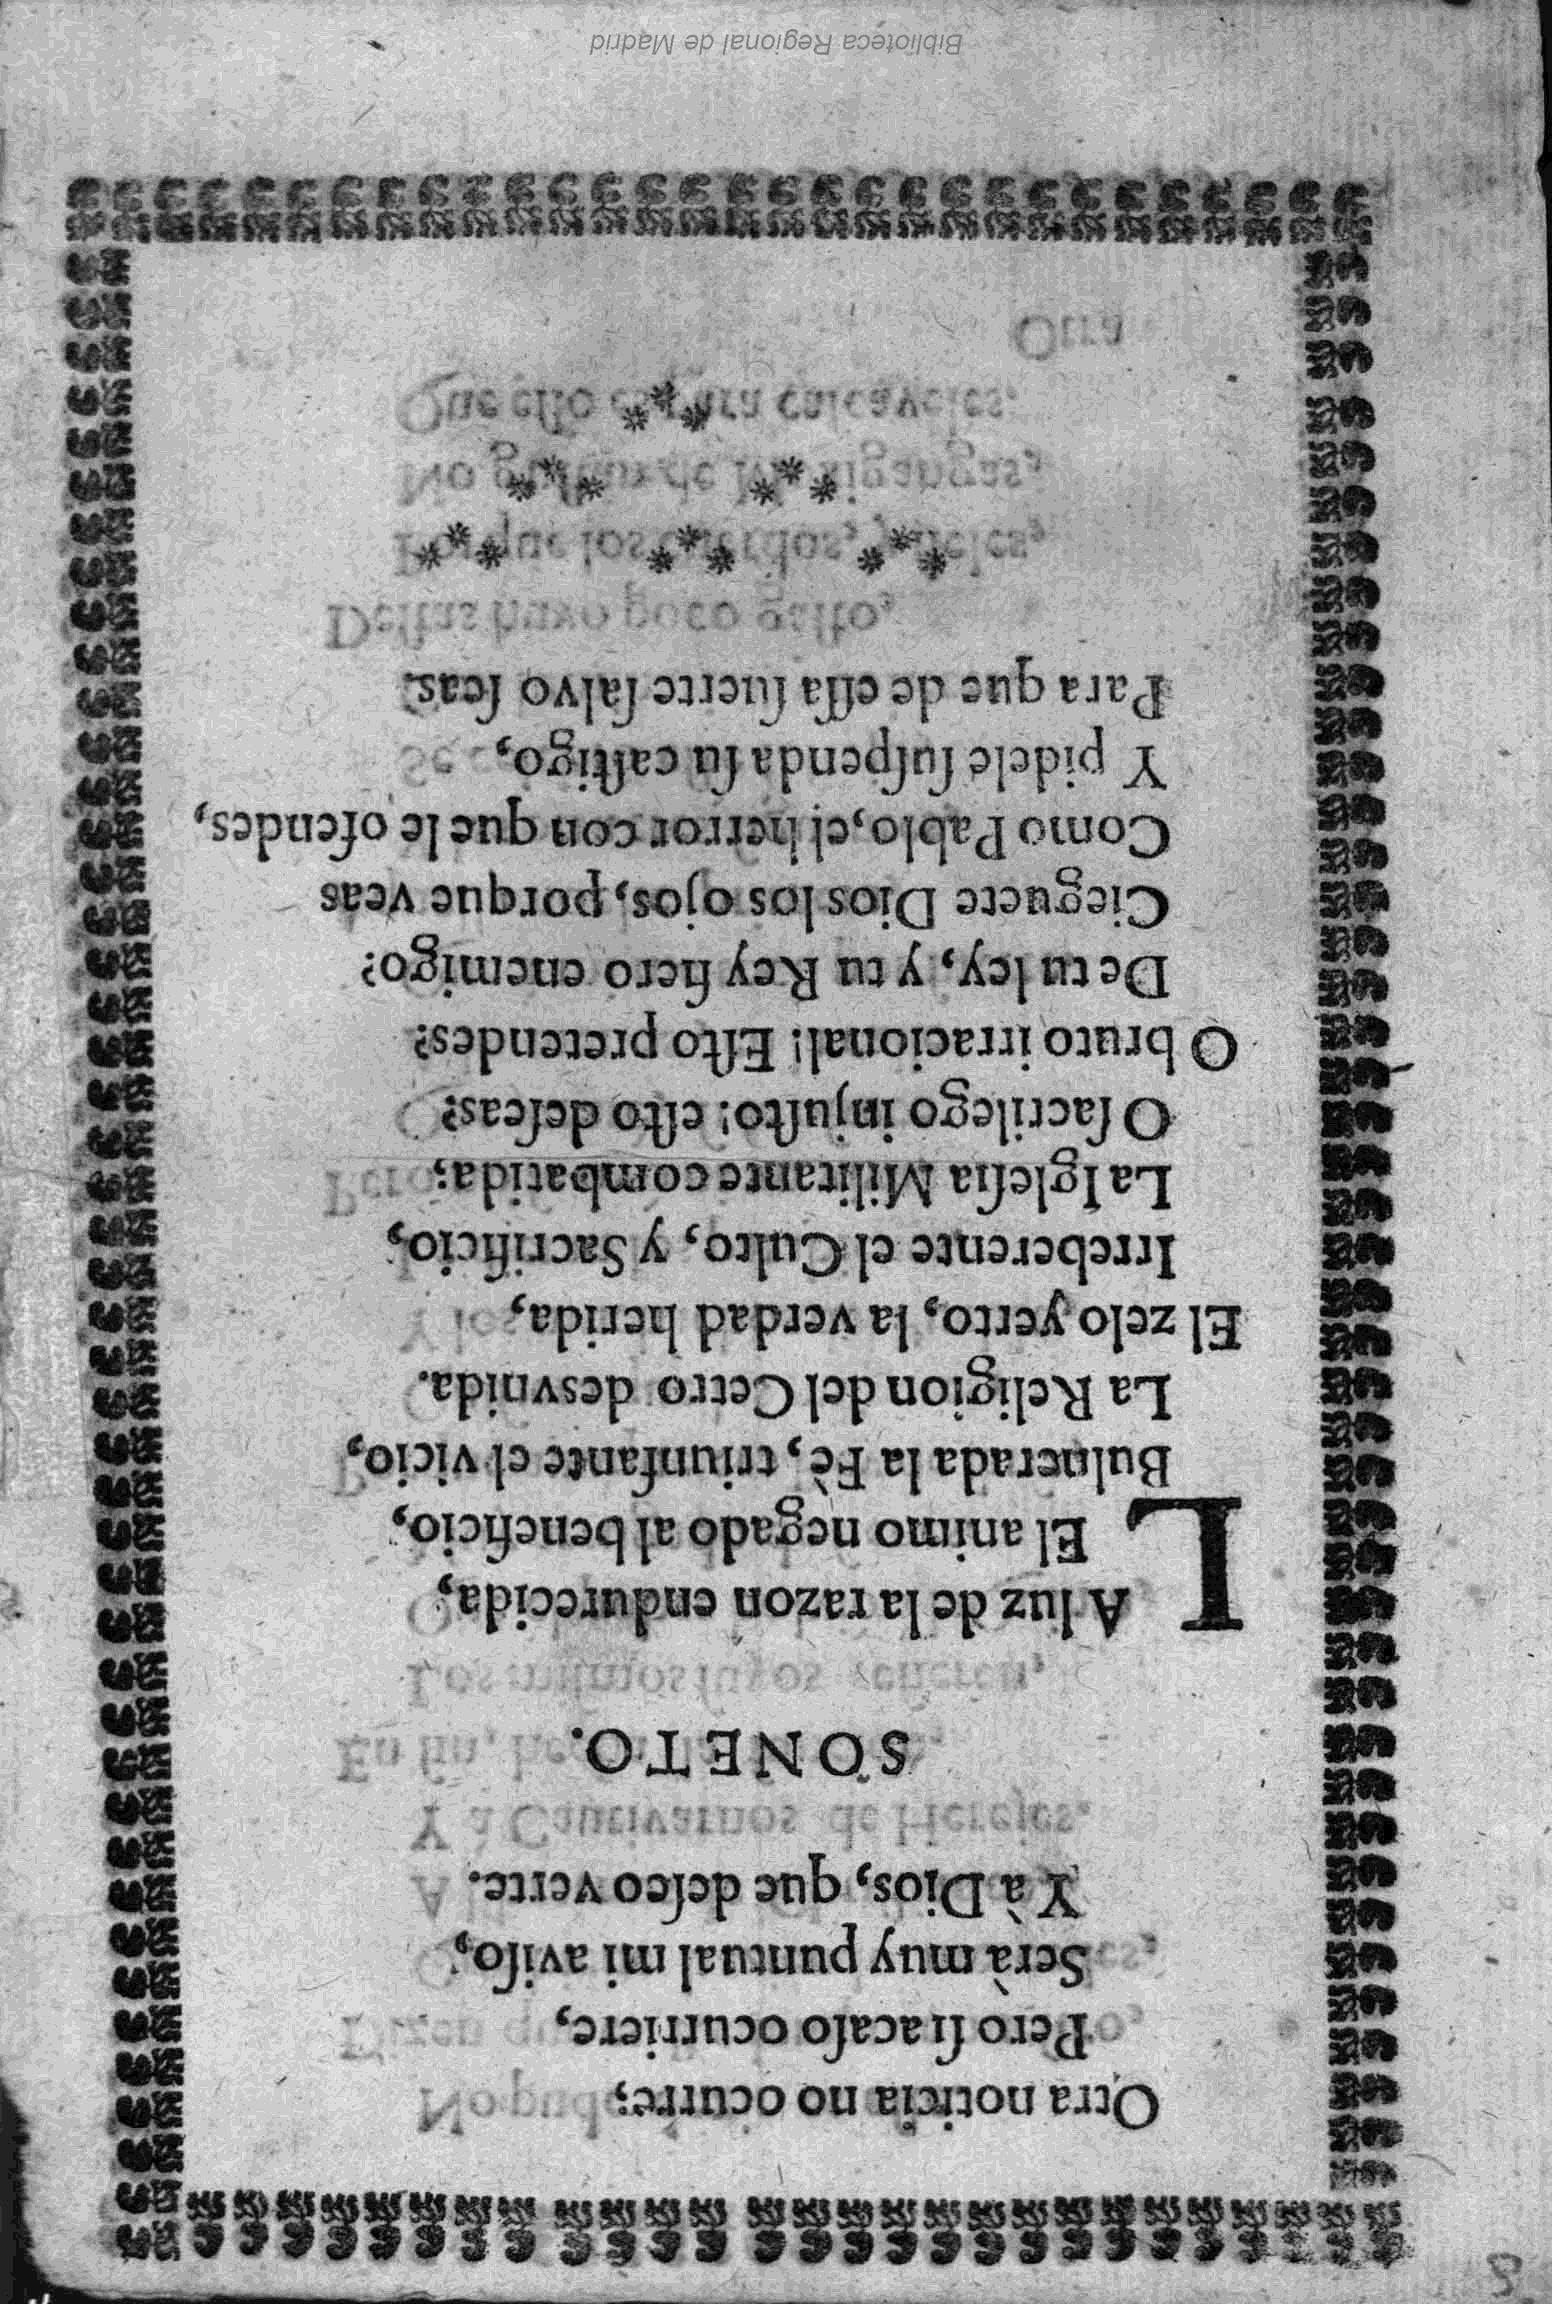 Otra noticia no ocurre;
Pero ſi acaſo ocurriere,
Serà muy puntual mi aviſo,
Y à Dios, que deſeo verte.
SONETO.
LA luz de la razon endurecida,
El animo negado al beneficio,
Bulnerada la Fè, triunfante el vicio,
La Religion del Cetro desvnida.
El zelo yerto, la verdad herida,
Irreberente el Culto, y Sacrificio,
La Igleſia Militante combatida;
O ſacrilego injuſto! eſto deſeas?
O bruto irracional! Eſto pretendes?
De tu ley, y tu Rey fiero enemigo?
Cieguete Dios los ojos, porque veas
Como Pablo, el herror con que le ofendes,
Y pidele ſuſpenda ſu caſtigo,
Para que de eſſa ſuerte ſalvo ſeas.
Biblioteca Regional de Madrid